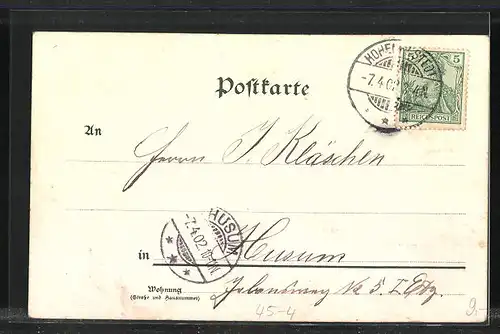 Postkarte
HOHENWESTEDT
-7.4.02
5
REICHSPOST
An
Herrn J. Kläschen
HUSUM
-7.4.02.
in Husum
Wohnung
(Straße und Hausnummer)
No 5 I
45-4
9.-